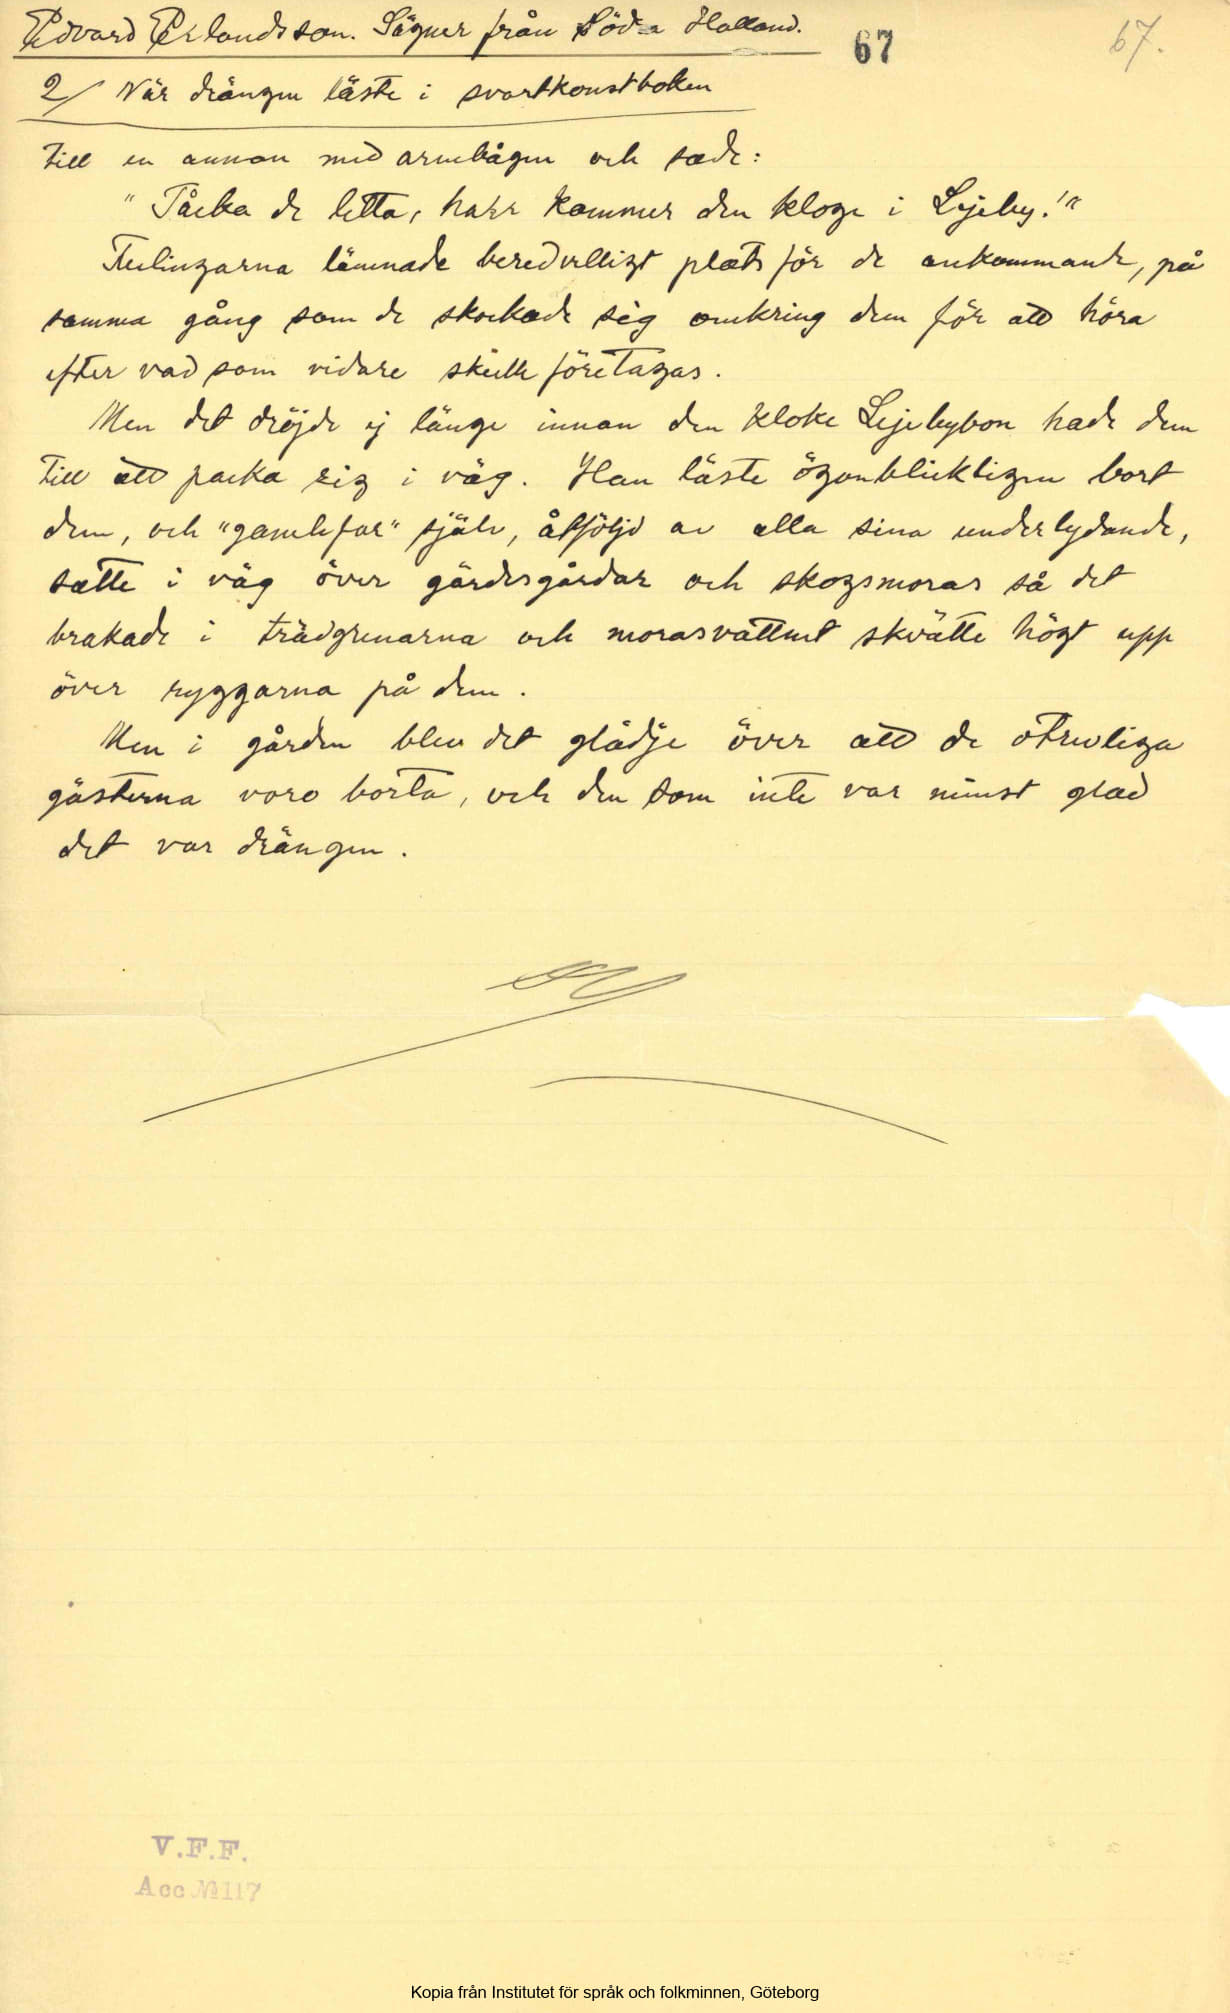 Edvard Erlandsson. Sägner från Södra Halland.
67
67.
2/ När drängen läste i svartkonstboken
till en annan med armbågen och sade:
"Påcka de letta, harr kommer den kloge i Lejeby!"
Fulingarna lämnade beredvilligt plats för de ankommande, på
samma gång som de skockade sig omkring dem för att höra
efter vad som vidare skulle företagas.
Men det dröjde ej länge innan den kloke Lejebybon hade dem
till att packa sig i väg. Han läste ögonblickligen bort
dem, och "gamlefar" själv, åtföljd av alla sina underlydande,
satte i väg över gärdesgårdar och skogsmoras så det
brakade i trädgrenarna och morasvattnet skvätte högt upp
över ryggarna på dem.
Men i gården blev det glädje över att de otrevliga
gästerna voro borta, och den som inte var minst glad
det var drängen.
V.F.F.
Acc № 117
Kopia från Institutet för språk och folkminnen, Göteborg